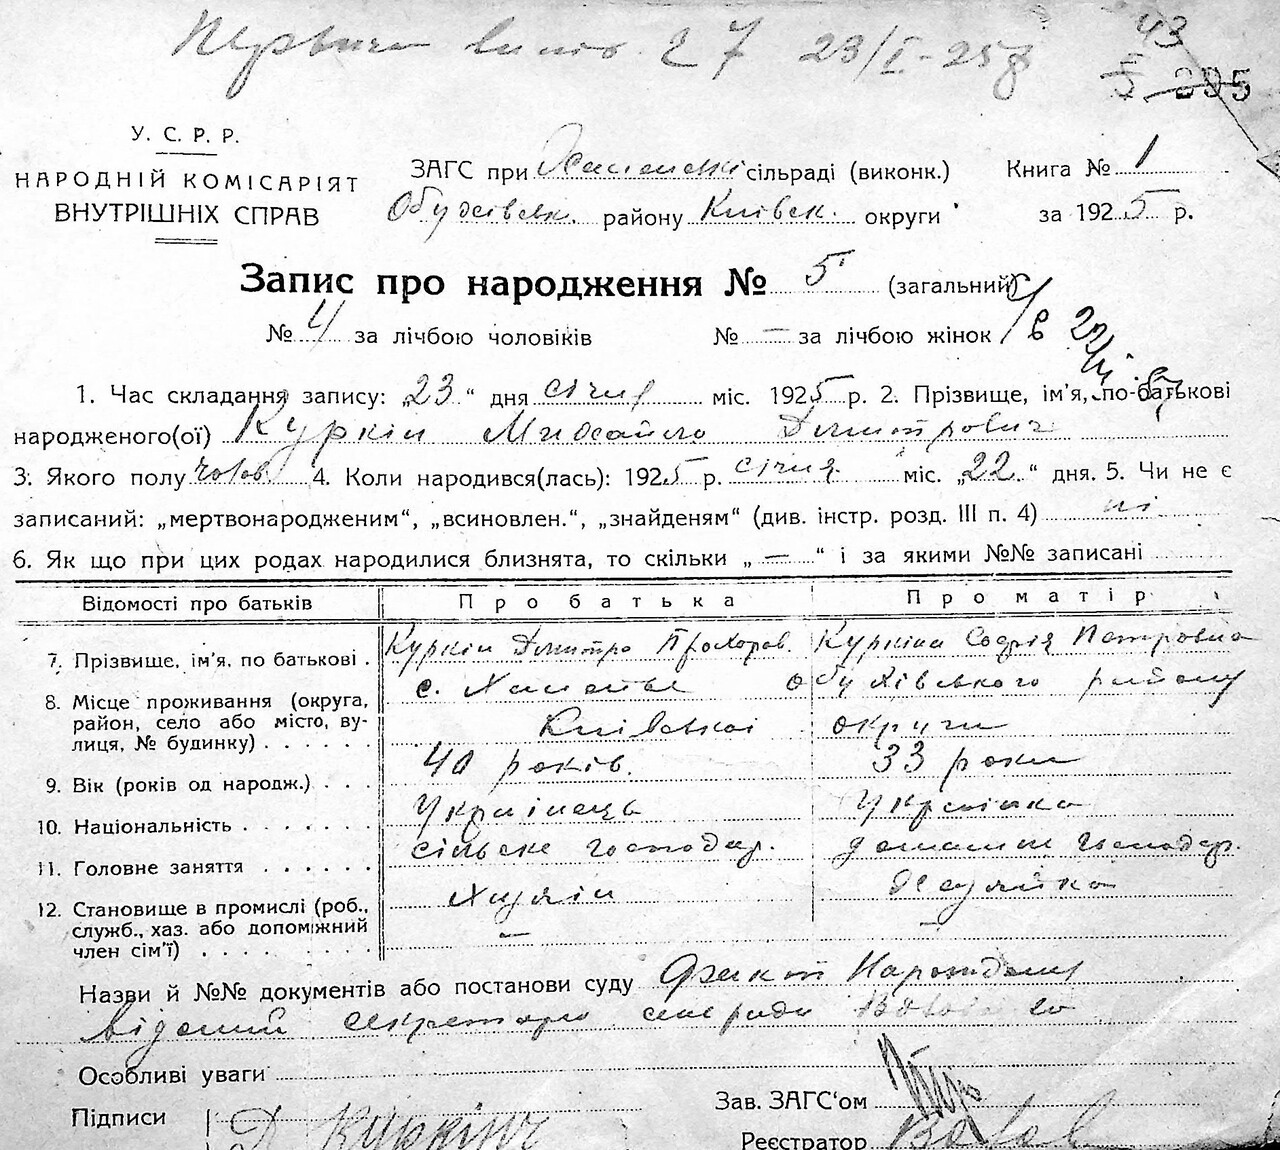 23/I-25 р
43
5 295
У. С. Р. Р.
НАРОДНІЙ КОМІСАРІЯТ
ВНУТРІШНІХ СПРАВ
ЗАГС при сільраді (виконк.)
Обухівськ. району Київськ. округи
Книга № 1
за 1925 р.
Запис про народження № 5 (загальний)
№ 4 за лічбою чоловіків № — за лічбою жінок
1. Час складання запису: „23“ дня січня міс. 1925 р. 2. Прізвище, ім'я, по-батькові
народженого(ої) Куркін Михайло Дмитрович
3. Якого полу чолов. 4. Коли народився(лась): 1925 р. січня міс. „22“ дня. 5. Чи не є
записаний: „мертвонародженим“, „всиновлен.“, „знайденям“ (див. інстр. розд. III п. 4) ні
6. Як що при цих родах народилися близнята, то скільки „—“ і за якими №№ записані
Відомості про батьків Про батька Про матір
7. Прізвище, ім'я, по батькові. Куркін Дмитро Прохоров. Куркіна Софія Петровна
8. Місце проживання (округа, район, село або місто, вулиця, № будинку) с. Обухівського району
Київської округи
9. Вік (років од народж.) 40 років. 33 роки
10. Національність Українець Українка
11. Головне заняття сільське господар. домашн господар.
12. Становище в промислі (роб., служб., хаз. або допоміжний член сім'ї) Хазяїн Хазяйка
— —
Назви й №№ документів або постанови суду Факт Народження
відомий секретарю сільради
Особливі уваги
Підписи Д Куркінъ
Зав. ЗАГС'ом
Реєстратор